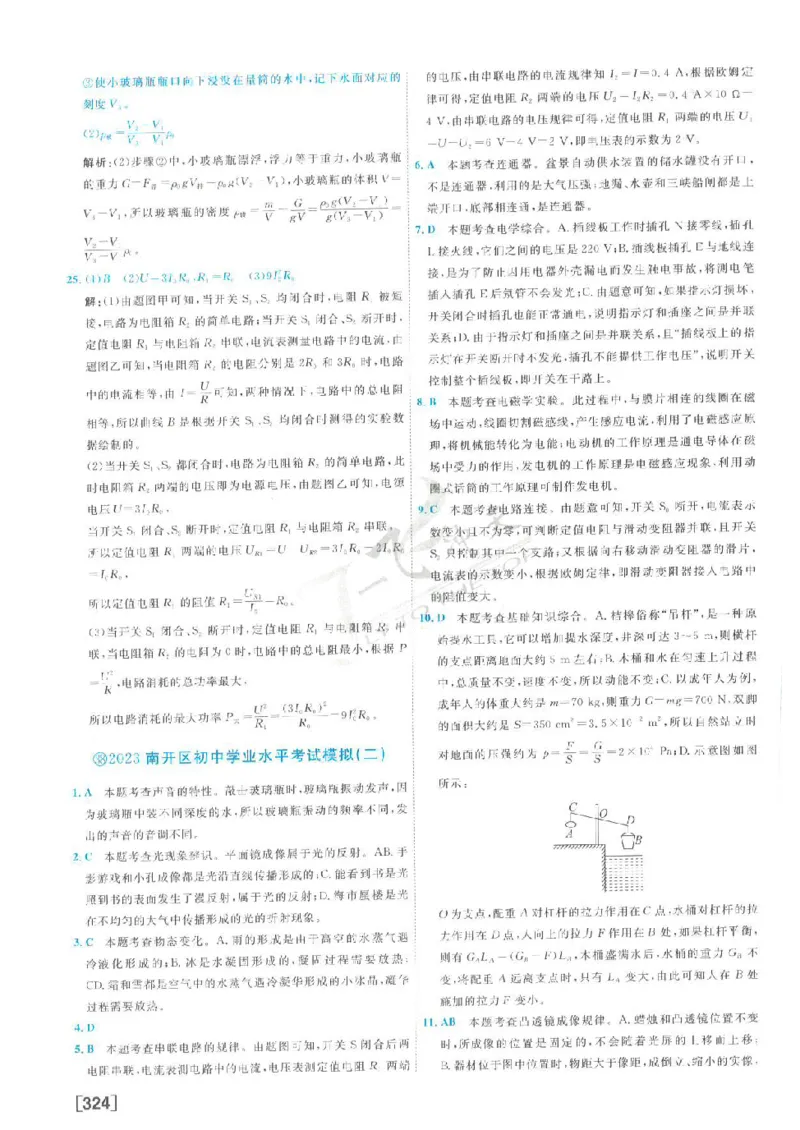 ③使小玻璃瓶瓶口向下浸没在量筒的水中,记下水面对应的
刻度 V₃。
(2)ρ玻=(V₂-V₁)/(V₃-V₁)ρ₀
解析:(2)步骤②中,小玻璃瓶漂浮,浮力等于重力,小玻璃瓶
的重力 G=F浮=ρ₀gV排=ρ₀g(V₂-V₁),小玻璃瓶的体积 V=
V₃-V₁,所以玻璃瓶的密度 ρ玻=m/V=G/gV=ρ₀g(V₂-V₁)/g(V₃-V₁)=
(V₂-V₁)/(V₃-V₁)ρ₀。
25.(1)B (2)U=3I₀R₀ R₁=R₀ (3)9I₀²R₀
解:(1)由题图甲可知,当开关 S₁、S₂ 均闭合时,电阻 R₁ 被短
接,电路为电阻箱 R₂ 的简单电路;当开关 S₁ 闭合、S₂ 断开时,
定值电阻 R₁ 与电阻箱 R₂ 串联,电流表测量电路中的电流,由
题图乙可知,当电阻箱 R₂ 的电阻分别是 2R₀ 和 3R₀ 时,电路
中的电流相等,由 I=U/R 可知,两种情况下,电路中的总电阻
相等,所以曲线 B 是根据开关 S₁、S₂ 均闭合时测得的实验数
据绘制的。
(2)当开关 S₁、S₂ 都闭合时,电路为电阻箱 R₂ 的简单电路,此
时电阻箱 R₂ 两端的电压即为电源电压,由题图乙可知,电源
电压 U=3I₀R₀。
当开关 S₁ 闭合、S₂ 断开时,定值电阻 R₁ 与电阻箱 R₂ 串联,
所以定值电阻 R₁ 两端的电压 U_R1=U-U_R2=3I₀R₀-2I₀R₀
=I₀R₀,
所以定值电阻 R₁ 的阻值 R₁=U_R1/I₀=R₀。
(3)当开关 S₁ 闭合、S₂ 断开时,定值电阻 R₁ 与电阻箱 R₂ 串
联,当电阻箱 R₂ 的电阻为 0 时,电路中的总电阻最小,根据 P
=U²/R,电路消耗的总功率最大,
所以电路消耗的最大功率 P大=U²/R₁=(3I₀R₀)²/R₀=9I₀²R₀。
㊳2023 南开区初中学业水平考试模拟(二)
1.A 本题考查声音的特性。敲击玻璃瓶时,玻璃瓶振动发声,因
为玻璃瓶中装不同深度的水,所以玻璃瓶振动的频率不同,发
出的声音的音调不同。
2.C 本题考查光现象辨识。平面镜成像属于光的反射。AB.手
影游戏和小孔成像都是光沿直线传播形成的;C.能看到书是光
照到书的表面发生了漫反射,属于光的反射;D.海市蜃楼是光
在不均匀的大气中传播形成的光的折射现象。
3.C 本题考查物态变化。A.雨的形成是由于高空的水蒸气遇
冷液化形成的;B.冰是水凝固形成的,凝固过程需要放热;
CD.霜和雪都是空气中的水蒸气遇冷凝华形成的小冰晶,凝华
过程需要放热。
4.D
5.B 本题考查串联电路的规律。由题图可知,开关 S 闭合后两
电阻串联,电流表测电路中的电流,电压表测定值电阻 R₁ 两端
[324]
的电压,由串联电路的电流规律知 I₂=I=0.4 A,根据欧姆定
律可得,定值电阻 R₂ 两端的电压 U₂=I₂R₂=0.4 A×10 Ω=
4 V,由串联电路的电压规律可得,定值电阻 R₁ 两端的电压 U₁
=U-U₂=6 V-4 V=2 V,即电压表的示数为 2 V。
6.A 本题考查连通器。盆景自动供水装置的储水罐没有开口,
不是连通器,利用的是大气压强;地漏、水壶和三峡船闸都是上
端开口,底部相连通,是连通器。
7.D 本题考查电学综合。A.插线板工作时插孔 N 接零线,插孔
L 接火线,它们之间的电压是 220 V;B.插线板插孔 E 与地线连
接,是为了防止因用电器外壳漏电而发生触电事故,将测电笔
插入插孔 E 后氖管不会发光;C.由题意可知,如果指示灯损坏,
开关闭合时插孔也能正常通电,说明指示灯和插座之间是并联
关系;D.由于指示灯和插座之间是并联关系,且“插线板上的指
示灯在开关断开时不发光,插孔不能提供工作电压”,说明开关
控制整个插线板,即开关在干路上。
8.B 本题考查电磁学实验。此过程中,与膜片相连的线圈在磁
场中运动,线圈切割磁感线,产生感应电流,利用了电磁感应原
理,将机械能转化为电能;电动机的工作原理是通电导体在磁
场中受力的作用,发电机的工作原理是电磁感应现象,利用动
圈式话筒的工作原理可制作发电机。
9.C 本题考查电路连接。由题意可知,开关 S₀ 断开,电流表示
数变小且不为零,可判断定值电阻与滑动变阻器并联,且开关
S₀ 只控制其中一个支路;又根据向右移动滑动变阻器的滑片,
电流表的示数变小,根据欧姆定律,即滑动变阻器接入电路中
的阻值变大。
10.D 本题考查基础知识综合。A.桔槔俗称“吊杆”,是一种原
始提水工具,它可以增加提水深度,并深可达 3~5 m,则横杆
的支点距离地面大约 5 m 左右;B.木桶和水在匀速上升过程
中,总质量不变,速度不变,所以动能不变;C.以成年人为例,
成年人的体重大约是 m=70 kg,则重力 G=mg=700 N,双脚
的面积大约是 S=350 cm²=3.5×10⁻² m²,所以自然站立时
对地面的压强约为 p=F/S=G/S=2×10⁴ Pa;D.示意图如图
所示:
C
O
D
A
B
O 为支点,配重 A 对杠杆的拉力作用在 C 点,水桶对杠杆的拉
力作用在 D 点,人向上的拉力 F 作用在 B 处,如果杠杆平衡,
则有 G_A L_A=(G_B-F)L_B,木桶盛满水后,水桶的重力 G_B 不
变,将配重 A 远离支点时,只有 L_A 变大,由此可知人在 B 处
施加的拉力 F 变小。
11.AB 本题考查凸透镜成像规律。A.蜡烛和凸透镜位置不变
时,所成像的位置是固定的,不会随着光屏的上移而上移;
B.器材位于图中位置时,物距大于像距,成倒立、缩小的实像,